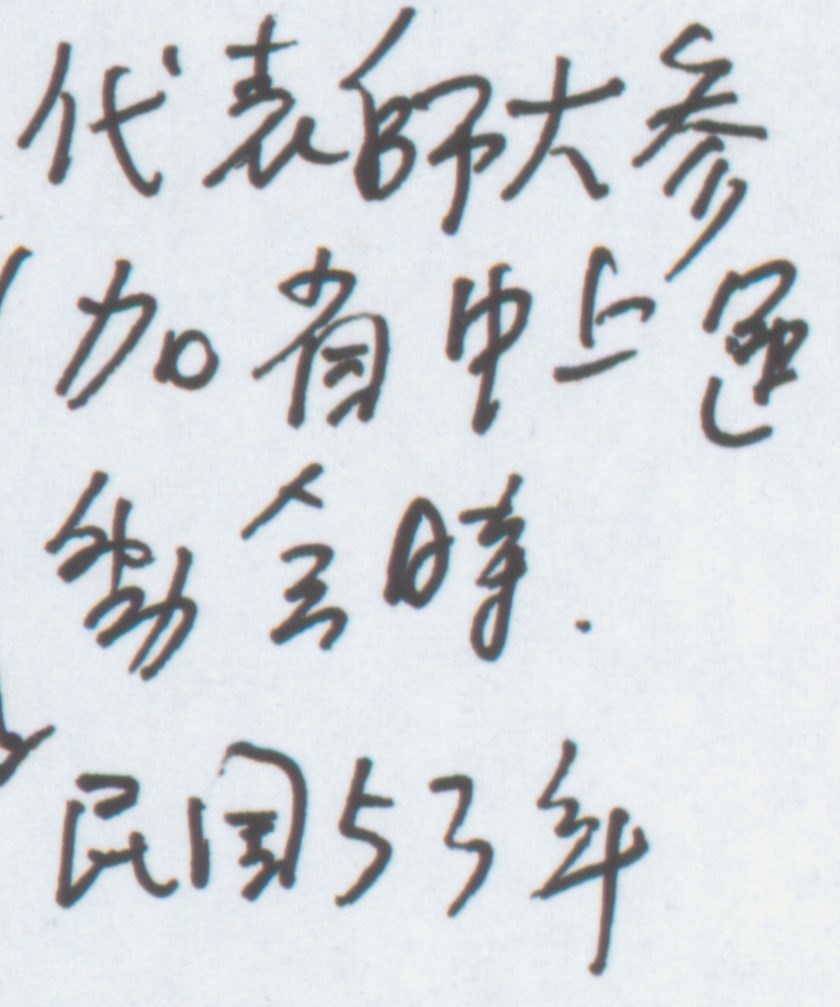 代表師大參
加省中上運
動会時.
民国53年